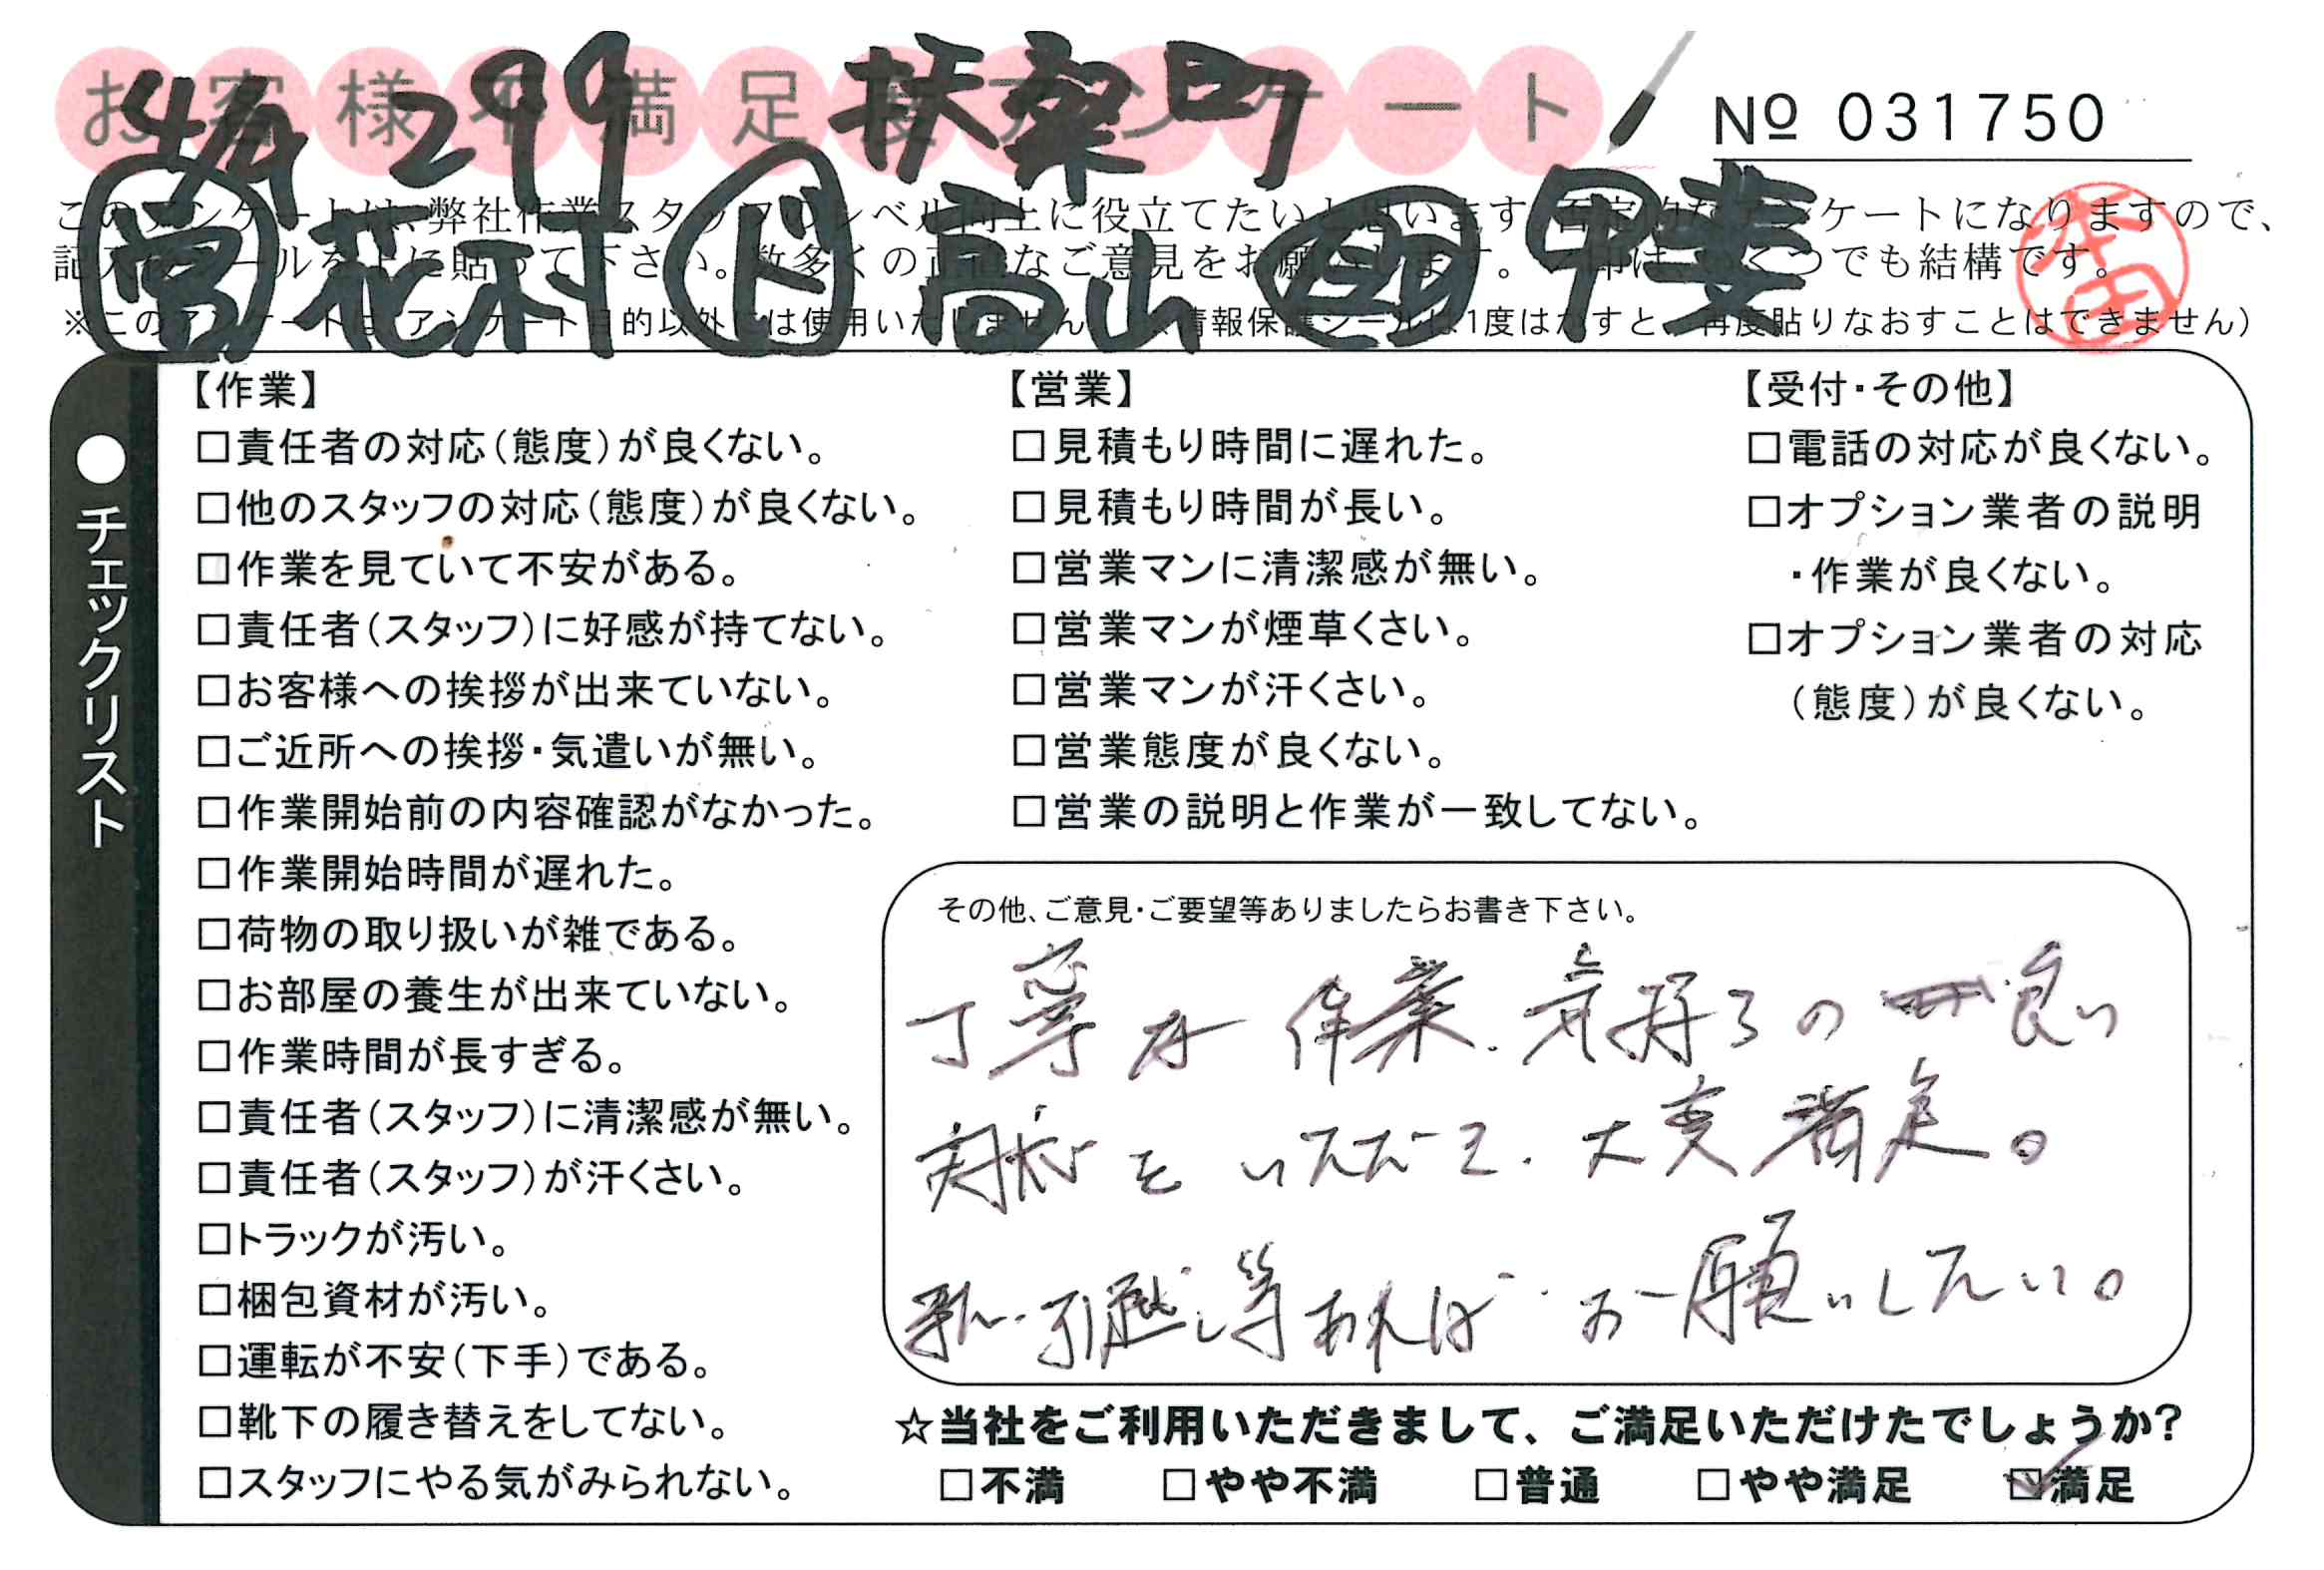 お客様不満足度アンケート
№ 031750
4/9 299 扶桑町
営 花村 ド 高山 甲斐
本田
このアンケートは、弊社作業スタッフのレベル向上に役立てたいと思います。否定的なアンケートになりますので、
記入後シールを上に貼って下さい。数多くの正直なご意見をお願いします。✓印は、いくつでも結構です。
※このアンケートは、アンケート目的以外には使用いたしません。(※情報保護シールは1度はがすと、再度貼りなおすことはできません)
●チェックリスト
【作業】
□責任者の対応(態度)が良くない。
□他のスタッフの対応(態度)が良くない。
□作業を見ていて不安がある。
□責任者(スタッフ)に好感が持てない。
□お客様への挨拶が出来ていない。
□ご近所への挨拶・気遣いが無い。
□作業開始前の内容確認がなかった。
□作業開始時間が遅れた。
□荷物の取り扱いが雑である。
□お部屋の養生が出来ていない。
□作業時間が長すぎる。
□責任者(スタッフ)に清潔感が無い。
□責任者(スタッフ)が汗くさい。
□トラックが汚い。
□梱包資材が汚い。
□運転が不安(下手)である。
□靴下の履き替えをしてない。
□スタッフにやる気がみられない。
【営業】
□見積もり時間に遅れた。
□見積もり時間が長い。
□営業マンに清潔感が無い。
□営業マンが煙草くさい。
□営業マンが汗くさい。
□営業態度が良くない。
□営業の説明と作業が一致してない。
【受付・その他】
□電話の対応が良くない。
□オプション業者の説明
・作業が良くない。
□オプション業者の対応
(態度)が良くない。
その他、ご意見・ご要望等ありましたらお書き下さい。
丁寧な作業、気持ちの良い
対応をいただき、大変満足。
引越し等あればお願いしたい。
☆当社をご利用いただきまして、ご満足いただけたでしょうか?
□不満 □やや不満 □普通 □やや満足 ☑満足